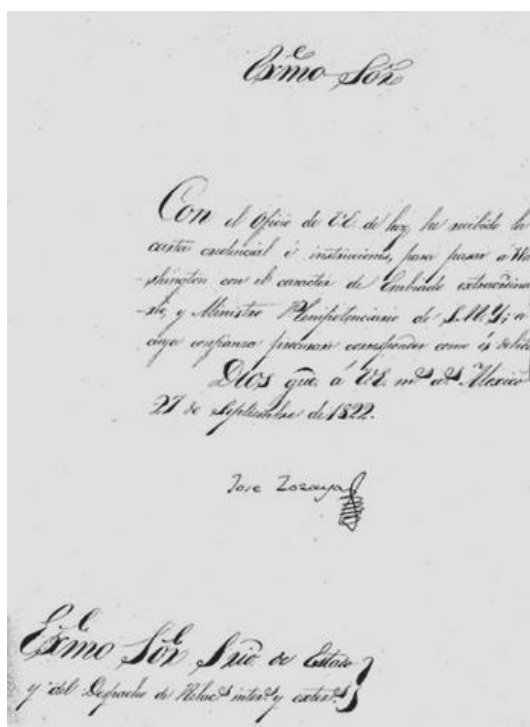 Exmo Sõr
Con el Oficio de V.E. de hoy, he recibido la
carta credencial é instrucciones, para pasar a Wa-
-shington con el caracter de Embiado extraordina-
-rio, y Ministro Plenipotenciario de S.M.Y; a
cuya confianza procurare corresponder como es debido.
Dios gũe. á V.E. ms. as. Mexico
27 de Septiembre de 1822.
Jose Zozaya
Exmo Sõr Srio. de Estado
y del Despacho de Relacs. inters. y exters.